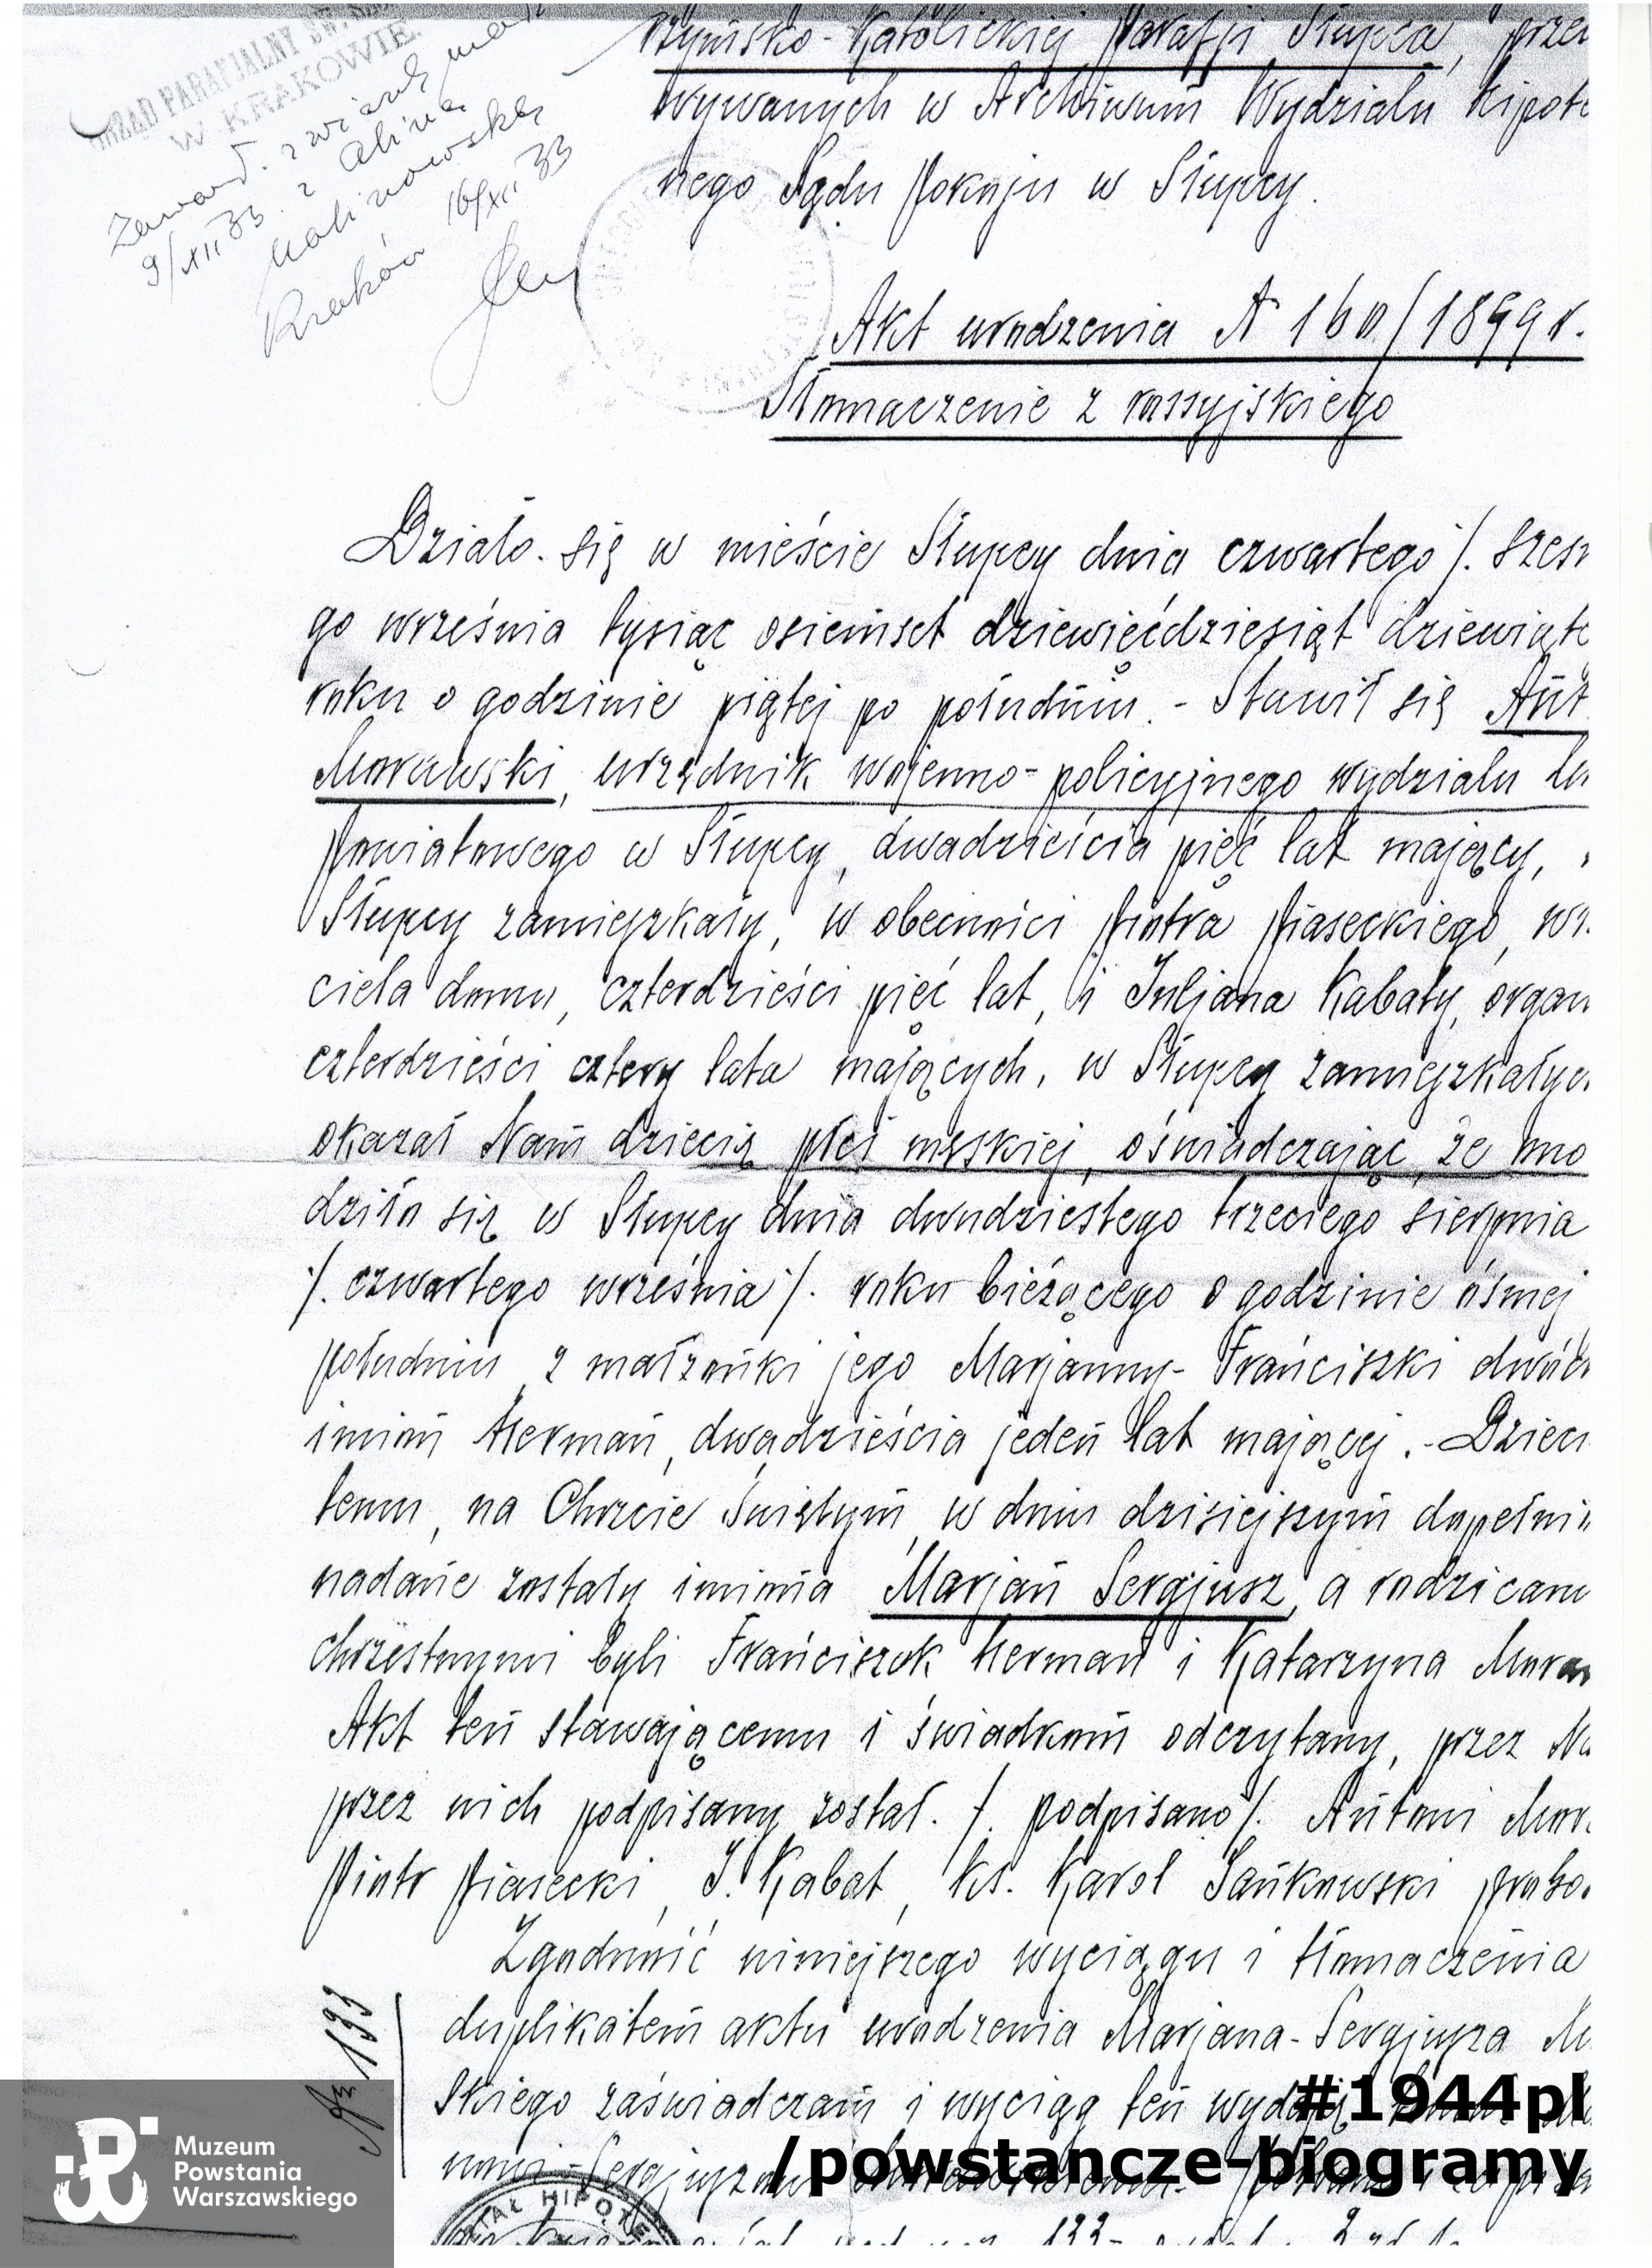 URZĄD PARAFJALNY ŚW.
W KRAKOWIE.
Zaward. związek mał
9/XII 33. z Aliną
Malinowską
Kraków 16/XII 33
Rzymsko-Katolickiej Parafji Słupca, prze
wywanych w Archiwum Wydziału hipote
nego Sądu Pokoju w Słupcy.
Akt urodzenia N 160/1899 r.
Tłomaczenie z rossyjskiego
Działo się w mieście Słupcy dnia czwartego /. szesn
go września tysiąc osiemset dziewięćdziesiąt dziewiąte
roku o godzinie piątej po południu. - Stawił się Ant.
Morawski, urzędnik wojenno-policyjnego wydziału
Powiatowego w Słupcy, dwadzieścia pięć lat mający,
Słupcy zamieszkały, w obecności Piotra Piaseckiego,
ciela domu, czterdzieści pięć lat, i Juljana Kabaty, organ
czterdzieści cztery lata mających, w Słupcy zamieszkałyc
okazał Nam dziecię płci męskiej, oświadczając, że uro
dziło się w Słupcy dnia dwudziestego trzeciego sierpnia
/. czwartego września /. roku bieżącego o godzinie ósmej
południu z małżonki jego Marjanny-Franciszki dwóch
imion Herman, dwadzieścia jeden lat mającej. - Dzieci
temu, na Chrzcie Świętym, w dniu dzisiejszym dopełnio
nadane zostały imiona Marjan Sergjusz, a rodzicam
chrzestnymi byli Franciszek Herman i Katarzyna Moraw
Akt ten stawającemu i świadkom odczytany, przez Na
przez nich podpisany został. /. podpisano /. Antoni Mora
Piotr Piasecki, J. Kabat, ks. Karol Jankowski probo.
Zgodność niniejszego wyciągu i tłomaczenia
duplikatem aktu urodzenia Marjana-Sergjusza M
skiego zaświadczam i wyciąg ten wydaję
nowi-Sergjuszowi
№ 133
#1944pl
/powstancze-biogramy
Muzeum
Powstania
Warszawskiego
WYDZIAŁ HIPOTE